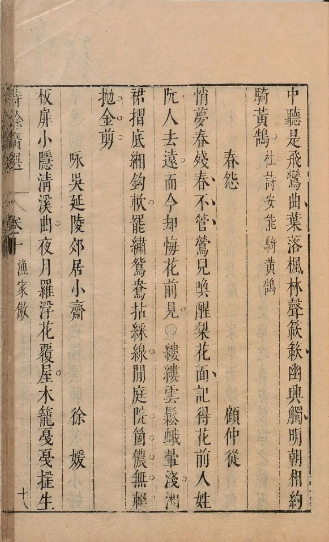 中聽是飛鸞曲葉落楓林聲籁籁幽興觸明朝相約
騎黃鵠杜詩安能騎黃鵠
春怨 顧仲從
悄夢春殘春不管鶯兒喚醒梨花面記得花前人姓
阮人去遠而今却悔花前見○縷縷雲鬆蛾暈淺湘
裙摺底緗鈎軟罷繡鴛鴦拈綵線閒庭院箇儂無
拋金剪
咏吳延陵郊居小齋 徐媛
板扉小隱清溪曲夜月羅浮花覆屋木籠戞戞搓生
詩餘廣選 卷十 漁家傲 十